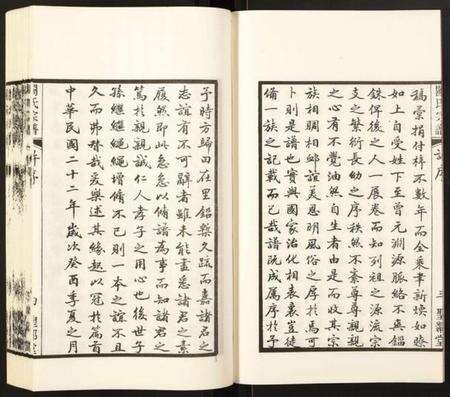 稿棠捐付梓不數年而全乘聿新煥如瞭
如上自受姓下至曾元淵源脈絡不與錙
銖俾後之人一展卷而知列祖之源流宗
支之繁衍長幼之序秩然不紊尊尊親親
之心有不覺油然自生者由是而收其宗
族相賙相卹誼美恩明風俗之厚於焉可
卜則是譜也實與國家治化相表裏豈徒
備一族之記載而已哉譜既成屬序於予
三
予時方歸田在里錙槧久疏而嘉諸君之
志誼有不可辭者雖未能盡悉諸君之素
履然即此急急以修譜為事而知諸君之
篤於親親誠仁人孝子之用心也後世子
孫繼繼繩繩增修不已則一本之誼不且
久而弗替哉爰樂述其緣起以冠於篇首
中華民國二十二年歲次癸酉季夏之月
氏宗譜